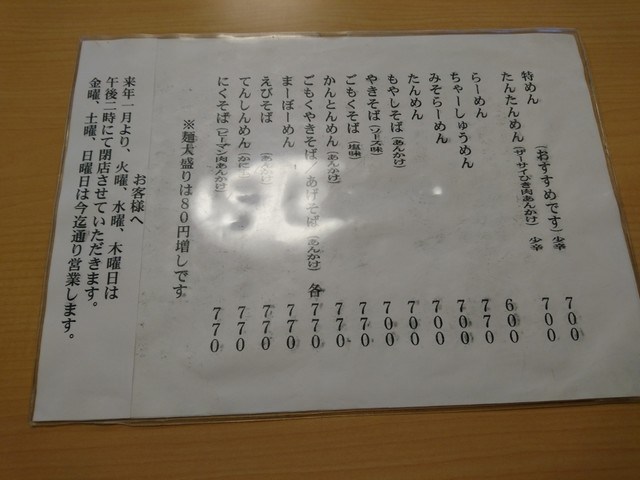 特めん (おすすめです) 少辛 700
たんたんめん (ザーサイひき肉あんかけ) 少辛 700
らーめん 600
ちゃーしゅうめん 770
みそらーめん 700
たんめん 700
もやしそば (あんかけ) 700
やきそば (ソース味) 700
ごもくそば (塩味) 770
かんとんめん (あんかけ) 770
ごもくやきそば/あげそば (あんかけ) 各 770
まーぼーめん 770
えびそば (あんかけ) 770
てんしんめん 770
にくそば (ピーマン肉あんかけ) 770
※麺大盛りは80円増しです
お客様へ
来年一月より、火曜、水曜、木曜日は
午後二時にて閉店させていただきます。
金曜、土曜、日曜日は今迄通り営業します。